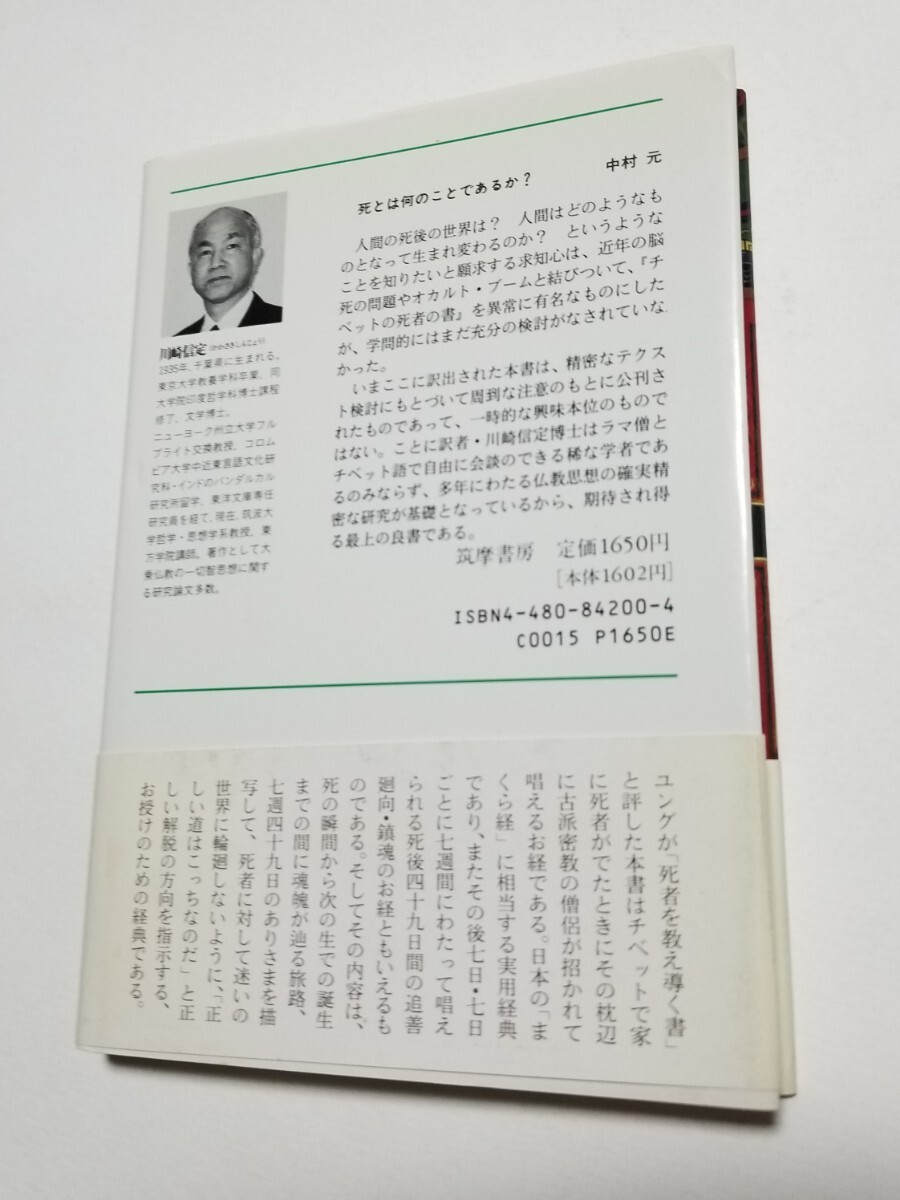 死とは何のことであるか?
中村 元
人間の死後の世界は? 人間はどのようなも
のとなって生まれ変わるのか? というような
ことを知りたいと願求する求知心は、近年の脳
死の問題やオカルト・ブームと結びついて、『チ
ベットの死者の書』を異常に有名なものにした
が、学問的にはまだ充分の検討がなされていな
かった。
いまここに訳出された本書は、精密なテクス
ト検討にもとづいて周到な注意のもとに公刊さ
れたものであって、一時的な興味本位のもので
はない。ことに訳者・川崎信定博士はラマ僧と
チベット語で自由に会談のできる稀な学者であ
るのみならず、多年にわたる仏教思想の確実精
密な研究が基礎となっているから、期待され得
る最上の良書である。
筑摩書房 定価1650円
[本体1602円]
ISBN4-480-84200-4
C0015 P1650E
川崎信定(かわさきしんじょう)
1935年、千葉県に生まれる。
東京大学教養学科卒業、同
大学院印度哲学科博士課程
修了、文学博士。
ニューヨーク州立大学フル
ブライト交換教授、コロム
ビア大学中近東言語文化研
究科・インドのバンダルカル
研究所留学、東洋文庫専任
研究員を経て、現在、筑波大
学哲学・思想学系教授、東
方学院講師。著作として大
乗仏教の一切智思想に関す
る研究論文多数。
ユングが「死者を教え導く書」
と評した本書はチベットで家
に死者がでたときにその枕辺
に古派密教の僧侶が招かれて
唱えるお経である。日本の「ま
くら経」に相当する実用経典
であり、またその後七日・七日
ごとに七週間にわたって唱え
られる死後四十九日間の追善
廻向・鎮魂のお経ともいえるも
のである。そしてその内容は、
死の瞬間から次の生での誕生
までの間に魂魄が辿る旅路、
七週四十九日のありさまを描
写して、死者に対して迷いの
世界に輪廻しないように、「正
しい道はこっちなのだ」と正
しい解脱の方向を指示する、
お授けのための経典である。